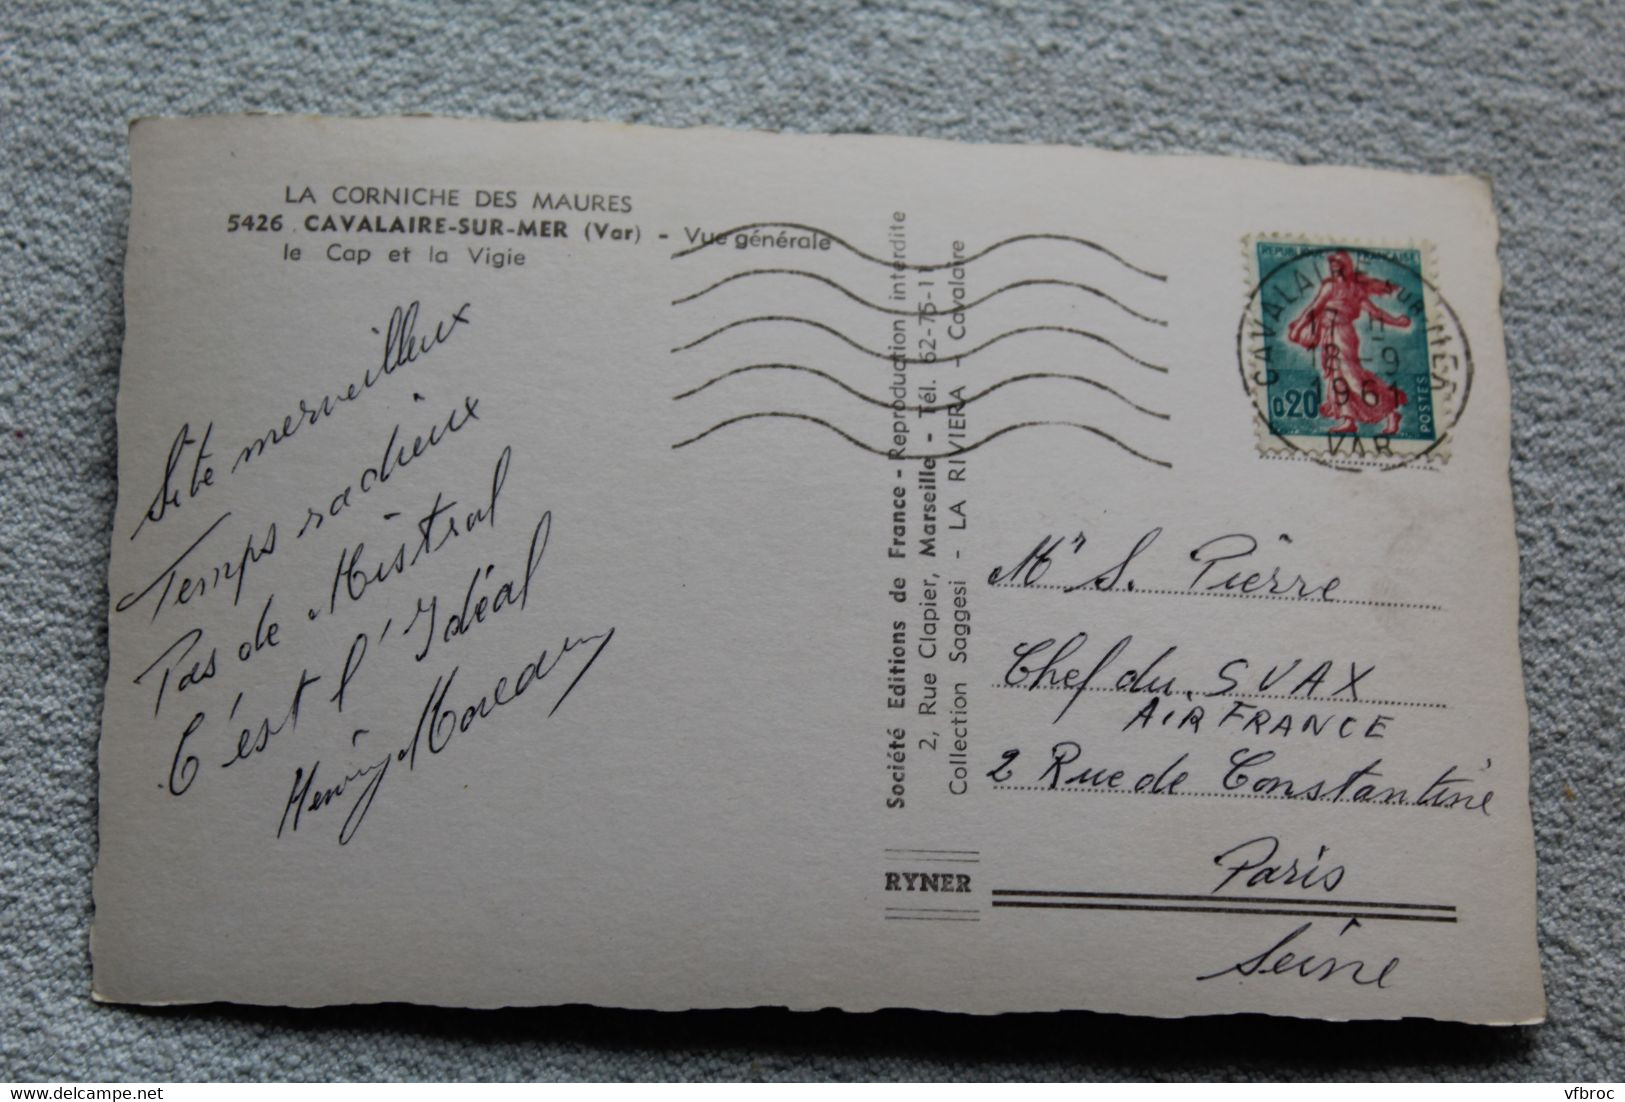 LA CORNICHE DES MAURES
5426. CAVALAIRE-SUR-MER (Var) - Vue générale
le Cap et la Vigie
Site merveilleux
Temps radieux
Pas de Mistral
C'est l'Idéal
Henry Moreau
Société Editions de France - Reproduction interdite
2, Rue Clapier, Marseille - Tél. 62-75-11
Collection Saggesi - LA RIVIERA - Cavalaire
RYNER
REPUBLIQUE FRANÇAISE
0,20
POSTES
CAVALAIRE SUR MER
17 H
18 -9
1961
VAR
Mr S. Pierre
Chef du SVAX
AIR FRANCE
2 Rue de Constantine
Paris
Seine
https://www.delcampe.net
vfbroc